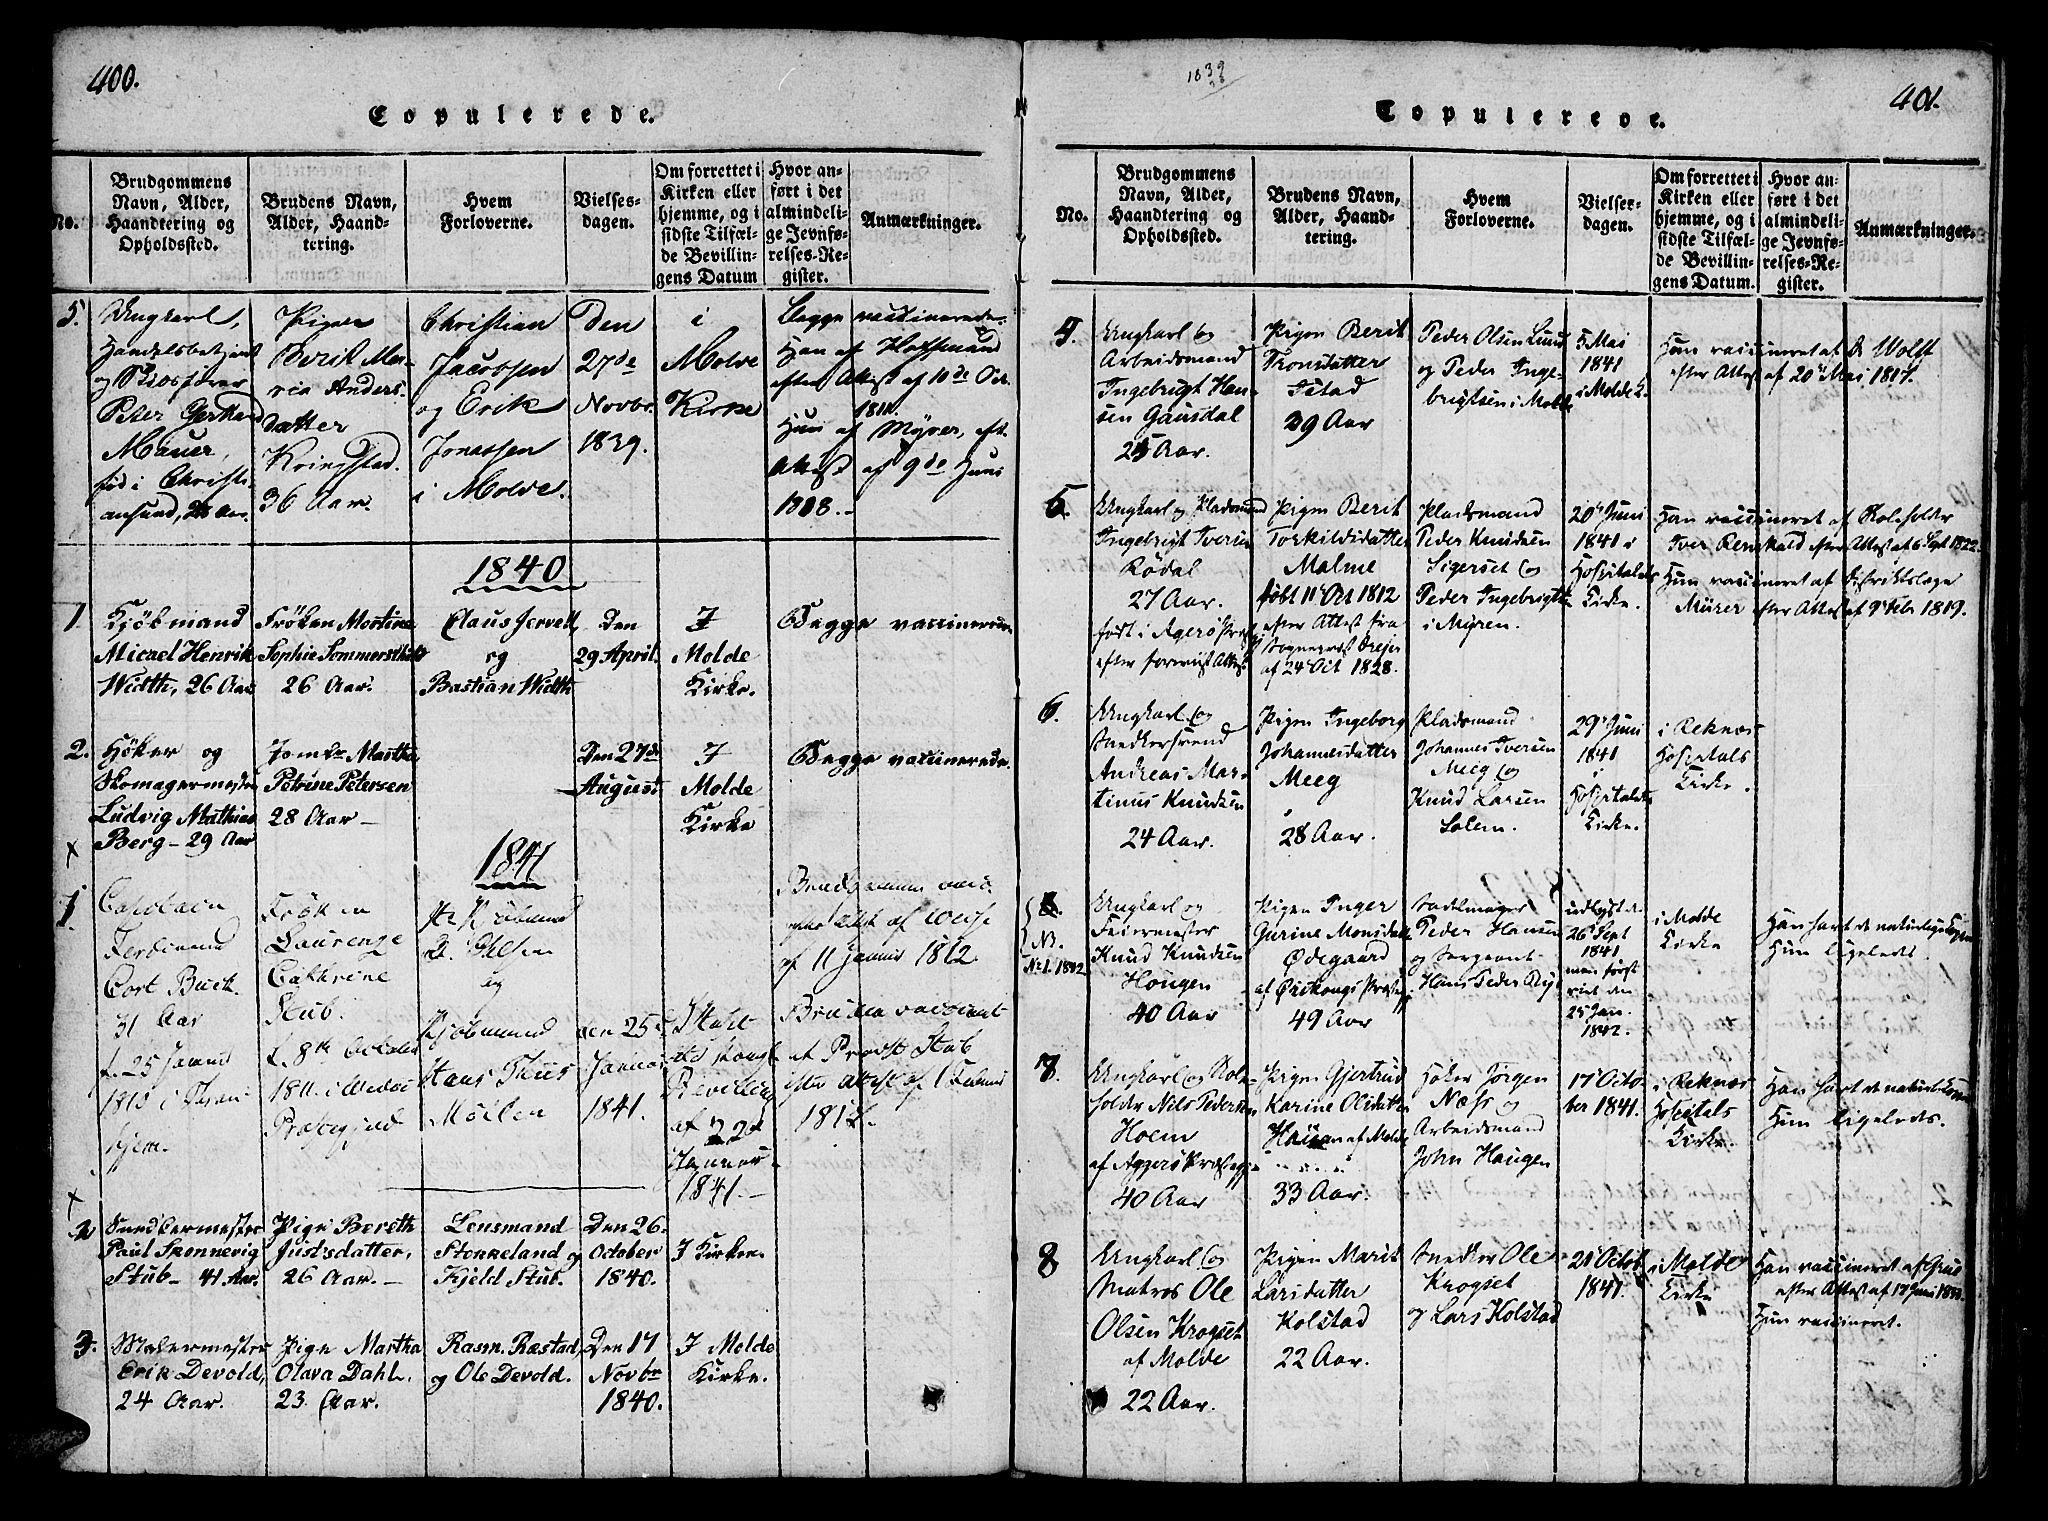 400.
Copulerede.
No.
Brudgommens
Navn, Alder,
Haandtering og
Opholdssted.
Brudens Navn,
Alder, Haand-
tering.
Hvem
Forloverne.
Vielses-
dagen.
Om forrettet i
Kirken eller
hjemme, og i
sidste Tilfæl-
de Bevillin-
gens Datum
Hvor an-
ført i det
almindeli-
ge Jevnfø-
relses-Re-
gister.
Anmærkninger.
5.
Ungkarl,
Handelsbetjent
og
Peter
Mauer,
Pigen
Berit Ma-
ria Anders-
datter
Kringstad.
36 Aar.
Christian
Jacobsen
og Erik
Jonassen
i Molde.
Den
27de
Novbr.
1839.
i
Molde
Kirke
Begge vaccinerede.
Han af
efter Attest af 10de Oct.
1811.
Hun af Myrer, eft.
Attest af 9de Juni
1808.
1840
1.
Kjöbmand
Micael Henrik
Width, 26 Aar
Fröken Martine
Sophie
26 Aar.
Claus Jervell
og
Bastian Width
Den
29 April.
I
Molde
Kirke.
Begge vaccinerede
2.
Höker og
Skomagermester
Ludvig Mathias
Berg - 29 Aar
Jomfr Martha
Petrine Petersen
28 Aar -
Den 27de
August
I
Molde
Kirke
Begge vaccinerede.
1841
1.
Capitain
Ferdinand
Cort Buck.
31 Aar
f. 25 Januar
Fröken
Laurenze
Cathrine
Stub.
f. 8de October
1811. i
Præstegjeld
Kjöbmand
og
Kjöbmand
Hans Thiis
Möller
den 25de
Januar
1841.
Bevilling
af 22de
Januar
1841. -
Brudgommen
af 11 Januar 1812.
Bruden vaccine-
ret Provst Stub
efter Attest af 1 Februar
1812.
2
Snedkermester
Paul Skonnevig
Stub - 41 Aar.
Pige Bereth
Justsdatter,
26 Aar. -
Lensmand
Stokkeland og
Kjeld Stub.
Den 26-
October
1840.
I Kirken.
3.
Malermester
Erik Devold,
24 Aar.
Pige Martha
Olava Dahl.
23 Aar.
Rasm. Ræstad,
og Ole Devold.
Den 17
Novbr
1840.
I Molde
Kirke.
1839
401.
Copulerede.
No.
Brudgommens
Navn, Alder,
Haandtering og
Opholdssted.
Brudens Navn,
Alder, Haand-
tering.
Hvem
Forloverne.
Vielses-
dagen.
Om forrettet i
Kirken eller
hjemme, og i
sidste Tilfæl-
de Bevillin-
gens Datum.
Hvor an-
ført i det
almindeli-
ge Jevnfø-
relses-Re-
gister.
Anmærkninger.
4.
Ungkarl og
Arbeidsmand
Ingebrigt Han-
sen Gausdal
25 Aar.
Pigen Berit
Tronsdatter
Istad
29 Aar
Peder Olsen Lund
og Peder Inge-
brigtsen i Molde
5 Mai
1841
i Molde K.
Han vaccineret af Dr Wolff
efter Attest af 20de Mai 1817.
5.
Ungkarl og Pladsmand
Ingebrigt Iversen
Rödal
27 Aar.
födt i Agerö Præstegj.
efter forevist Attest
Pigen Berit
Torkildsdatter
Malme
födt 11 Oct 1812
efter Attest fra
Sognepræst
af 24 Oct 1828.
Pladsmand
Peder Knudsen
Sigerset og
Peder Ingebrigts.
i Myren.
20de Juni
1841 i
Hospitalets
Kirke.
Han vaccineret af Kirkeholder
Iver efter Attest af 6 Sept 1822.
Hun vaccineret af Distriktslæge
Mürer efter Attest af 9 Febr 1819.
6.
Ungkarl og
Snedkersvend
Andreas Mar-
tinus Knudsen
24 Aar.
Pigen Ingeborg
Johannesdatter
Meeg
28 Aar.
Pladsmand
Johannes Iversen
Meeg og
Knud Larsen
Solem.
29 Juni
1841
i
Hospitalets
Kirke.
i Reknæs
Hospitals
Kirke.
NB.
No 1. 1842
Ungkarl og
Feiermester
Knud Knudsen
Haugen
40 Aar
Pigen Inger
Gurine Monsdatt.
Ödegaard
af Örskougs Præstegj.
49 Aar
Sadelmager
Peder Hansen
og Sergeant
Hans Peder
udlyst d.
26 Sept
1841
men först
viet den
25 Jan.
1842.
i Molde
Kirke
Han havt de naturlige Kopper
Hun ligeledes.
7.
Ungkarl og Kole-
holder Nils Pedersen
Hoem
af Aggerö Præstegj.
40 Aar
Pigen Gjertrud
Karine Olsdatter
Haugen af Molde
33 Aar.
Höker Jörgen
Næss og
Arbeidsmand
John Haugen
17 Octo-
ber 1841.
i Reknæs
Hospitals
Kirke.
Han havt de naturl. Kopper
Hun ligeledes.
8
Ungkarl og
Matros Ole
Olsen Krogset
af Molde
22 Aar.
Pigen Marit
Larsdatter
Kolstad
22 Aar.
Snedker Ole
Krogset
og Lars Kolstad
21 Octob.
1841.
i Molde
Kirke
Han vaccineret af
efter Attest af 17 Juni
Hun vaccineret.